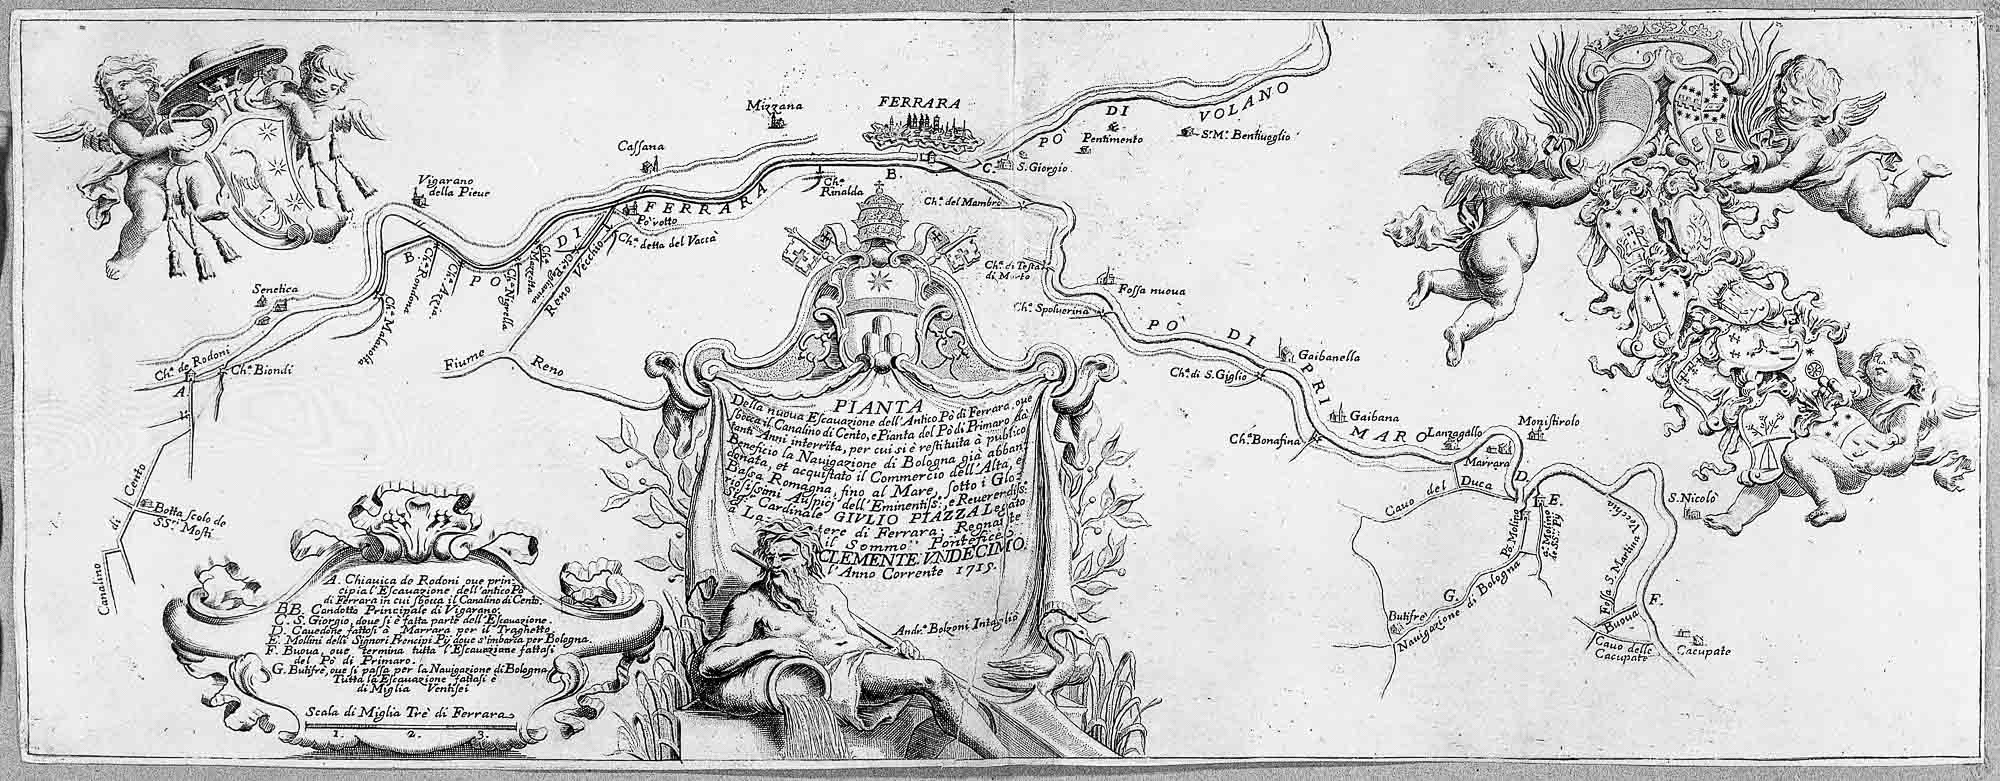 PIANTA
Della nuova Escauazione dell'Antico Pò di Ferrara, oue
sbocca il Canalino di Cento, e Pianta del Pò di Primaro dà
tanti Anni interrita, per cui si è restituita à publico
Beneficio la Nauigazione di Bologna già abban:
donata, et acquistato il Commercio dell'Alta, e
Bassa Romagna, fino al Mare, sotto i Glo:
riosissimi Auspicj dell'Eminentiss: e Reuerendiss:
Sigr. Cardinale GIVLIO PIAZZA Legato
a Latere di Ferrara, Regnante
il Sommo Pontefice
CLEMENTE VNDECIMO.
l'Anno Corrente 1715.
Andr.ª Bolzoni Intagliò
A. Chiauica de Rodoni oue prin:
cipia l'Escauazione dell'antico Pò
di Ferrara in cui sbocca il Canalino di Cento.
BB. Condotto Principale di Vigarano.
C. S. Giorgio, doue si è fatta parte dell'Escauazione.
D. Cauedone fattosi à Marrara per il Traghetto.
E. Mollini delli Signori Prencipi Pij doue s'imbarca per Bologna.
F. Buoua, oue termina tutta l'Escauazione fattasi
del Pò di Primaro.
G. Butifrè, oue si passa per la Nauigazione di Bologna
Tutta la Escauazione fattasi è
di Miglia Ventisei
Scala di Miglia Trè di Ferrara
1. 2. 3.
Mizzana
FERRARA
Cassana
Vigarano
della Pieue
Senetica
Ch.ª de Rodoni
A
Ch.ª Biondi
Canalino di Cento
Botta scolo de
SS.ri Mosti
Ch.ª Maluolta
B.
Ch.ª Rondona
Ch.ª Azzia
Ch.ª Nigrella
PÒ DI FERRARA
Reno Vecchio
Pò rotto
Ch.ª detta del Vaccà
Fiume Reno
Ch.ª
Rinalda
B.
C.
S. Giorgio
PÒ DI VOLANO
Pentimento
S. M.ª Bentiuoglio
Ch.ª del Mambro
Ch.ª di Testa
di Morto
Fossa nuoua
Ch.ª Spoluerina
PÒ DI PRIMARO
Gaibanella
Ch.ª di S. Giglio
Gaibana
Ch.ª Bonafina
Lanzagallo
Monistirolo
Marrara
D.
E.
Cauo del Duca
Pò Molino
Butifrè
G.
Nauigazione di Bologna
S. Nicolò
Fossa S. Martina Vecchio
F.
Buoua
Cauo delle
Cacupate
Cacupate